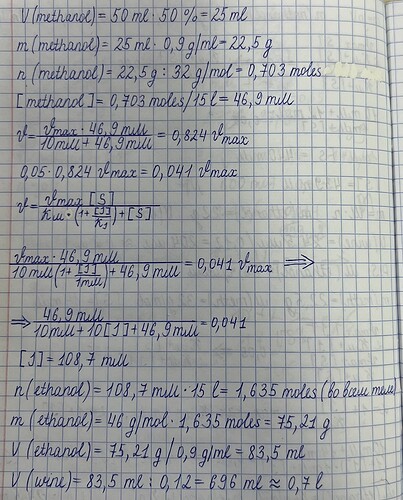 V (methanol) = 50 ml · 50 % = 25 ml
m (methanol) = 25 ml · 0,9 g/ml = 22,5 g
n (methanol) = 22,5 g : 32 g/mol = 0,703 moles
[methanol] = 0,703 moles / 15 l = 46,9 mM
ϑ = ϑmax · 46,9 mM / 10 mM + 46,9 mM = 0,824 ϑmax
0,05 · 0,824 ϑmax = 0,041 ϑmax
ϑ = ϑmax [S] / Kм · (1 + [J]/KJ) + [S]
ϑmax · 46,9 mM / 10 mM (1 + [J]/1mM) + 46,9 mM = 0,041 ϑmax ⇒
⇒ 46,9 mM / 10 mM + 10 [J] + 46,9 mM = 0,041
[J] = 108,7 mM
n (ethanol) = 108,7 mM · 15 l = 1,635 moles (во всем теле)
m (ethanol) = 46 g/mol · 1,635 moles = 75,21 g
V (ethanol) = 75,21 g / 0,9 g/ml = 83,5 ml
V (wine) = 83,5 ml : 0,12 = 696 ml ≈ 0,7 l